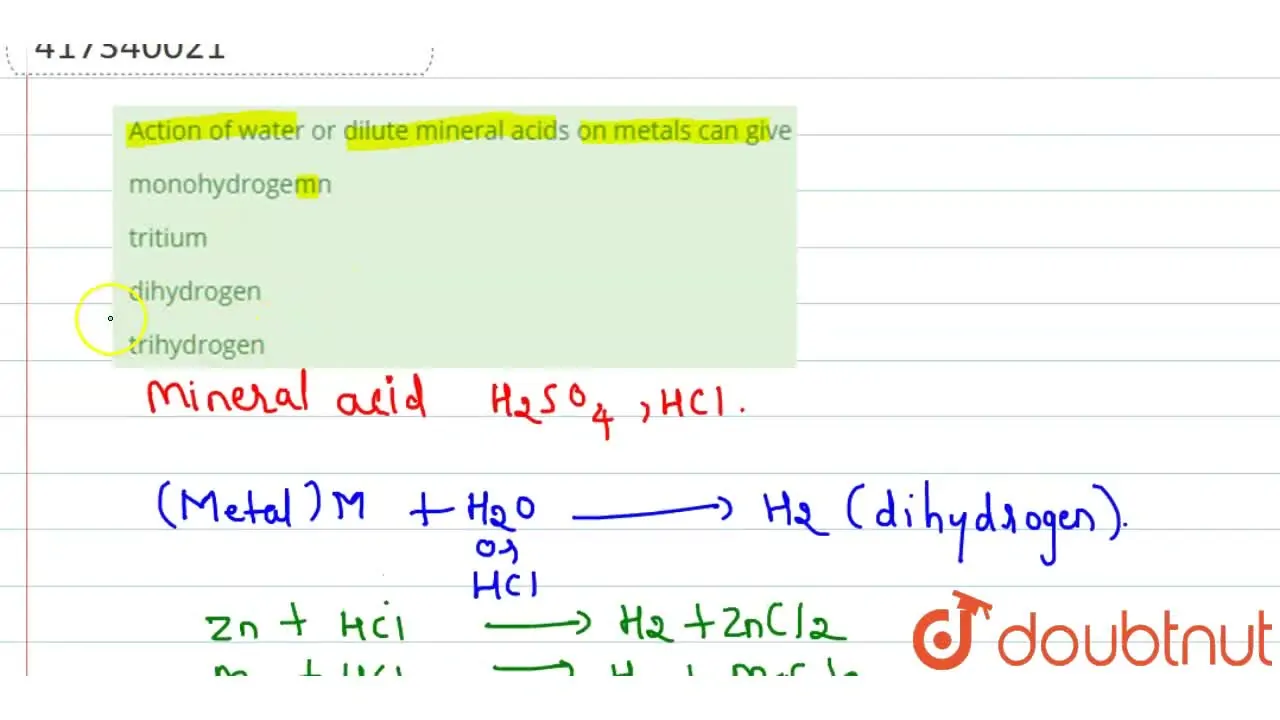 417340021
Action of water or dilute mineral acids on metals can give
monohydrogemn
tritium
dihydrogen
trihydrogen
Mineral acid H2SO4, HCl.
(Metal) M + H2O → H2 (dihydrogen).
or
HCl
Zn + HCl → H2 + ZnCl2
doubtnut